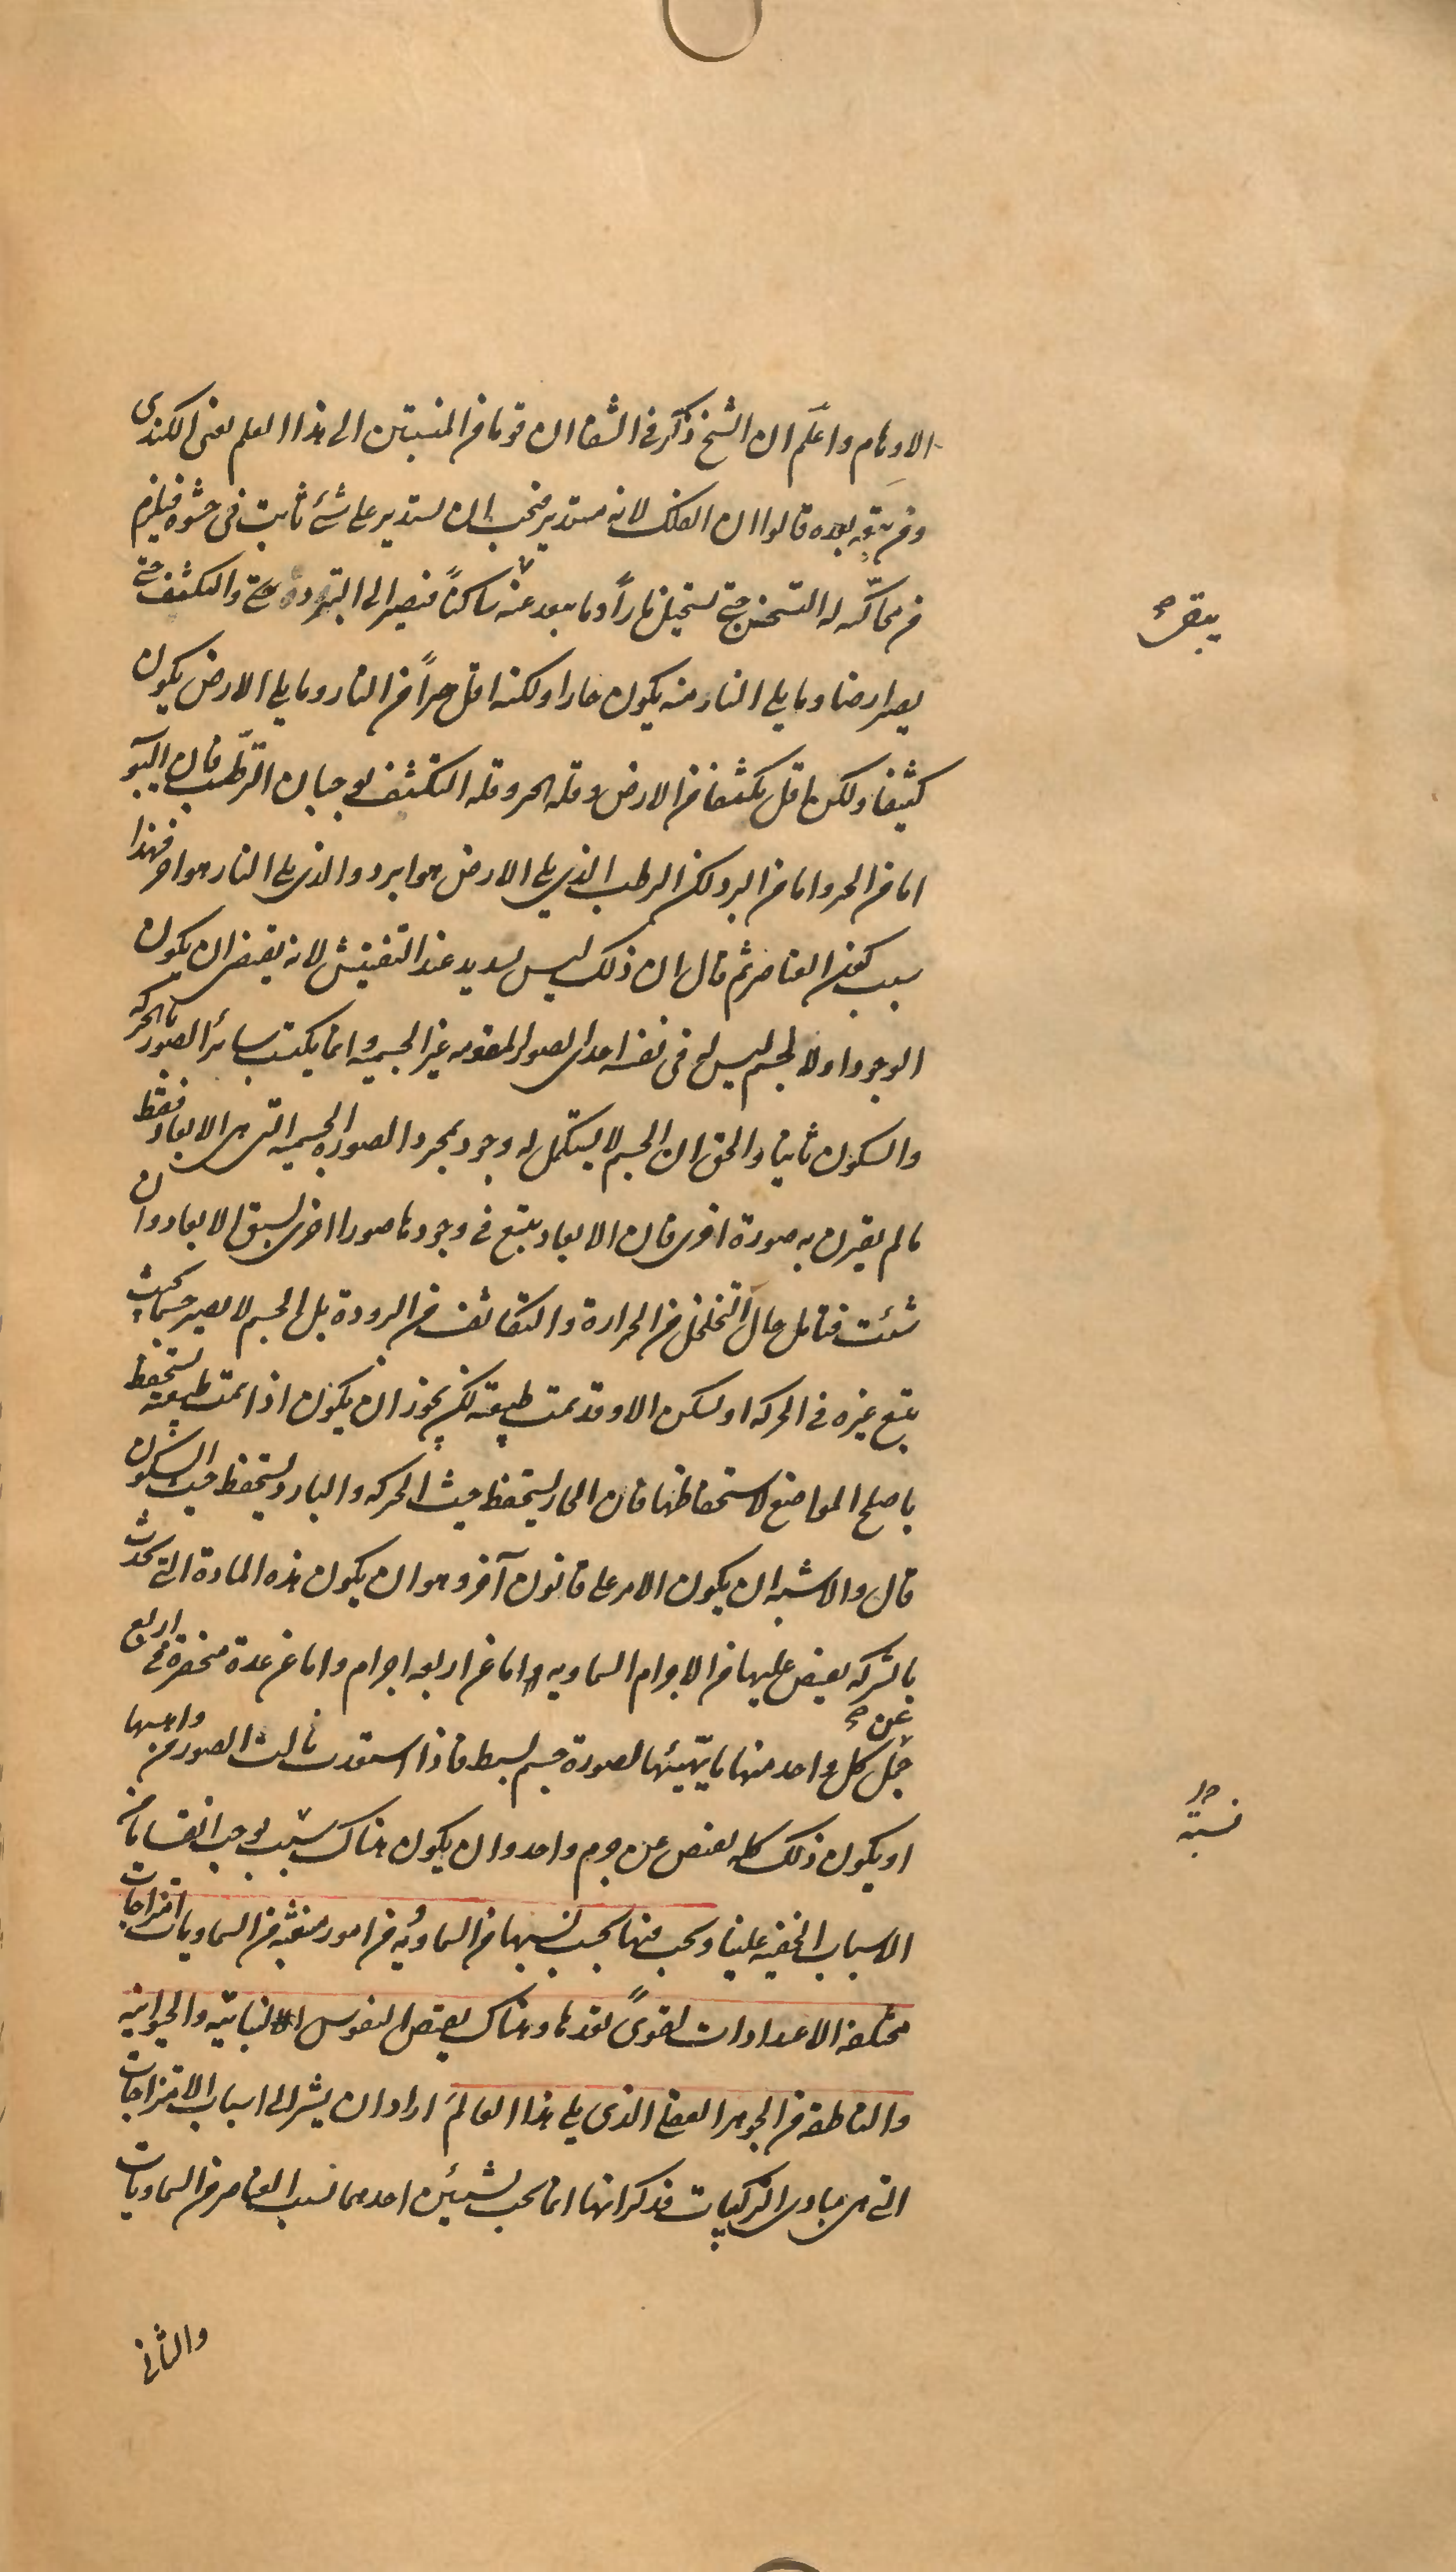 الاوهام واعلم ان الشيخ ذكر فى الشفا ان قوما من المنتسبين الى هذا العلم يعنى الكندى
ومن تبعه بعده قالوا ان الفلك لانه مستدير فيجب ان يستدير على شئ ثابت فى حشوه فيلزم
من محاكته له التسخن حتى تستحيل نارا وما يبعد عنه ساكنا فيصير الى التبرد حتى والتكثف حتى
يصير ارضا وما يلى النار منه يكون حارا ولكنه اقل حرا من النار وما يلى الارض يكون
كثيفا ولكن اقل تكثفا من الارض وقلة الحر وقلة التكثف يوجبان الترطب فان اليبو
اما من الحر واما من البرد لكن الرطب الذى يلى الارض هو ابرد والذى يلى النار هو احر فهذا
سبب كون العناصر ثم قال ان ذلك ليس بسديد عند التفتيش لانه يقتضى ان يكون
الوجود اولا لجسم ليس له فى نفسه احدى الصور المقومة غير الجسمية وانما يكتسب سائر الصور بالحركة
والسكون ثانيا والحق ان الجسم لا يستكمل له وجود بمجرد الصورة الجسمية التى هى الابعاد فقط
ما لم يقترن به صورة اخرى فان الابعاد يتبع فى وجودها صورا اخرى تسبق الابعاد وان
شئت فتامل حال التخلخل من الحرارة والتكاثف من البرودة بل الجسم لا يصير جسما بحيث
يتبع غيره فى الحركة او يسكن الا وقد تمت طبيعته لكن يجوز ان يكون اذا تمت طبيعته يستحفظ
باصلح المواضع لاستحفاظها فان الحار يستحفظ حيث الحركة والبارد يستحفظ حيث السكون
قال والاشبه ان يكون الامر على قانون آخر وهو ان يكون هذه المادة التى تحدث
بالشركة يفيض عليها من الاجرام السماوية اما عن اربعة اجرام واما عن عدة منحصرة فى اربع
عن
جمل كل واحد منها ما يهيئها لصورة جسم بسيط فاذا استعدت نالت الصور من واهبها
او يكون ذلك كله يفيض عن جرم واحد وان يكون هناك سبب يوجب انقساما من
الاسباب الخفية علينا ويجب منها بحسب نسبها من السماوية من امور منبعثة من السماويات امتزاجات
مختلفة الاعدادات لقوى تعدها وهناك يفيض النفوس النباتية والحيوانية
والناطقة من الجوهر العقلى الذى يلى هذا العالم اراد ان يشير الى اسباب الامتزاجات
التى هى مبادى التركيبات فذكر انها انما تجب بشيئين احدهما نسب العناصر من السماويات
والثانى
يبقى
نسبة